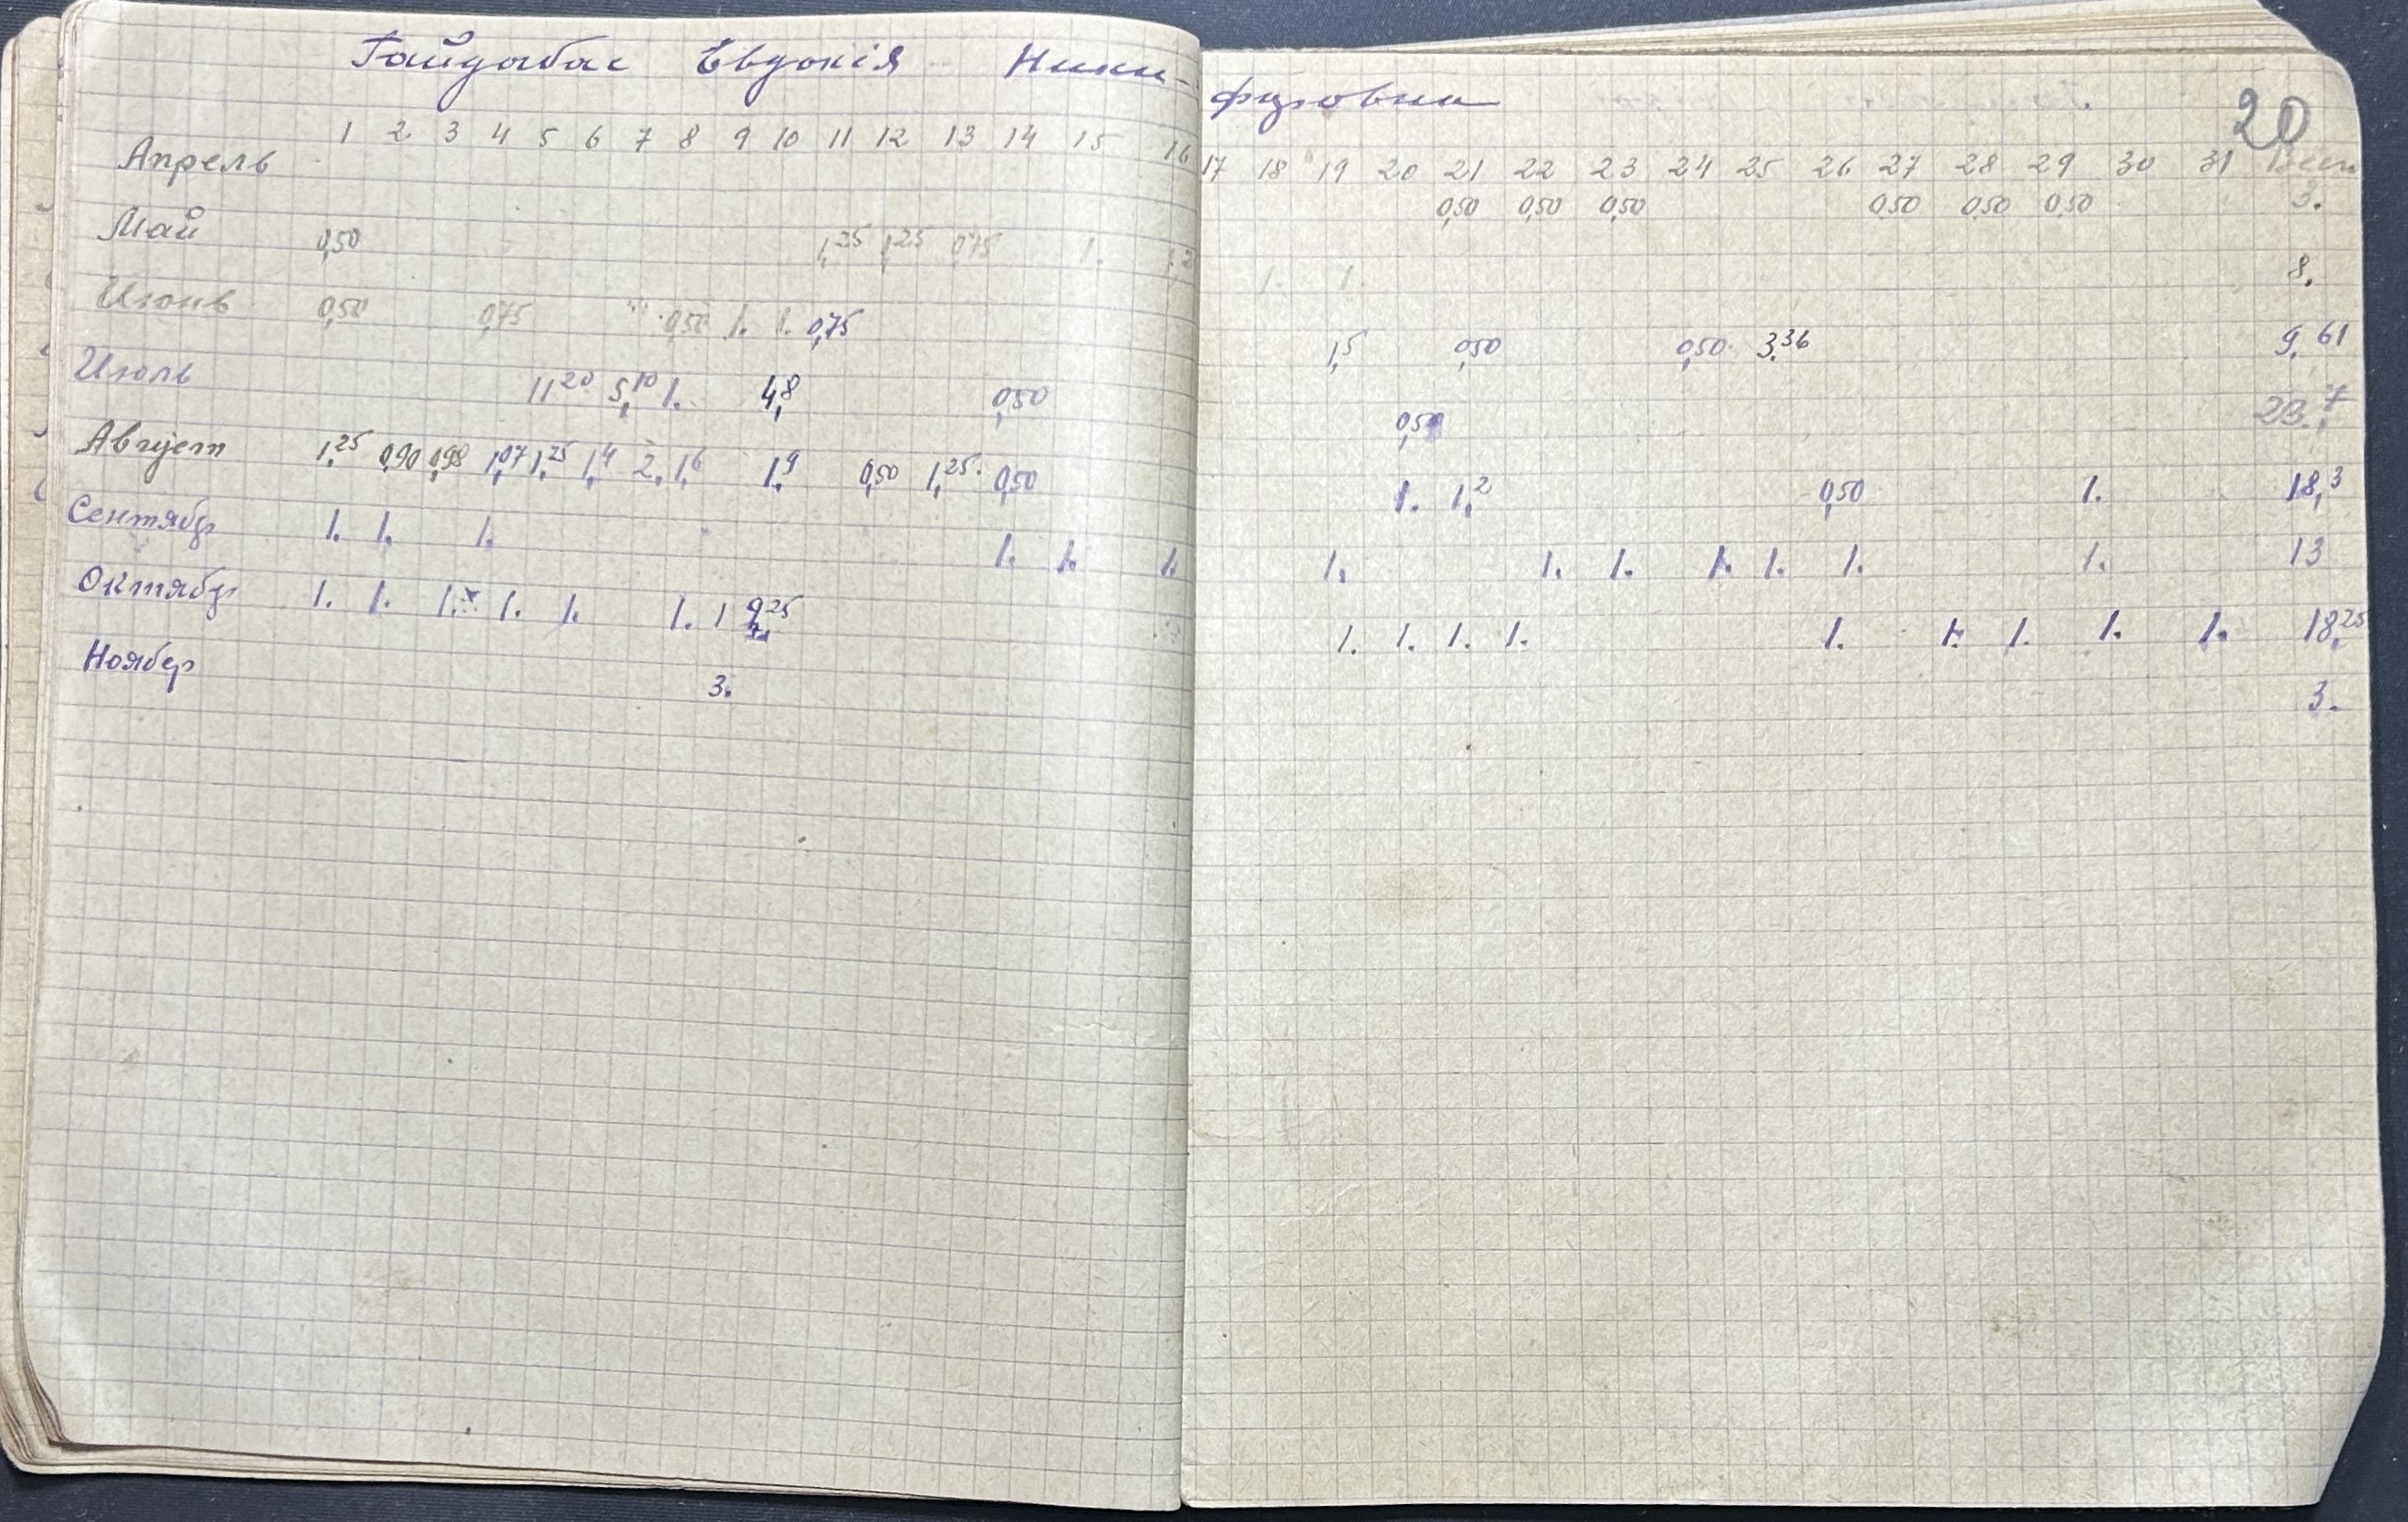 Гайдабас Евдокія Ники-
форовна
20
1 2 3 4 5 6 7 8 9 10 11 12 13 14 15 16 17 18 19 20 21 22 23 24 25 26 27 28 29 30 31 Всего
Апрель 0,50 0,50 0,50 0,50 0,50 0,50 3.
Май 0,50 1,25 1,25 0,75 1. 1. 1. 8.
Июнь 0,50 0,75 0,50 1. 1. 0,75 1,5 0,50 0,50 3,36 9,61
Июль 11 20 5,10 1. 4,8 0,50 0,50 23,7
Август 1,25 0,90 0,98 1,07 1,25 1,4 2. 1,6 1,9 0,50 1,25 0,50 1. 1,2 0,50 1. 18,3
Сентябр 1. 1. 1. 1. 1. 1. 1. 1. 1. 1. 1. 1. 1. 13
Октябр 1. 1. 1. 1. 1. 1. 1 1. 1. 1. 1. 1. 1. 1. 1. 1. 18,25
Ноябер 3. 3.